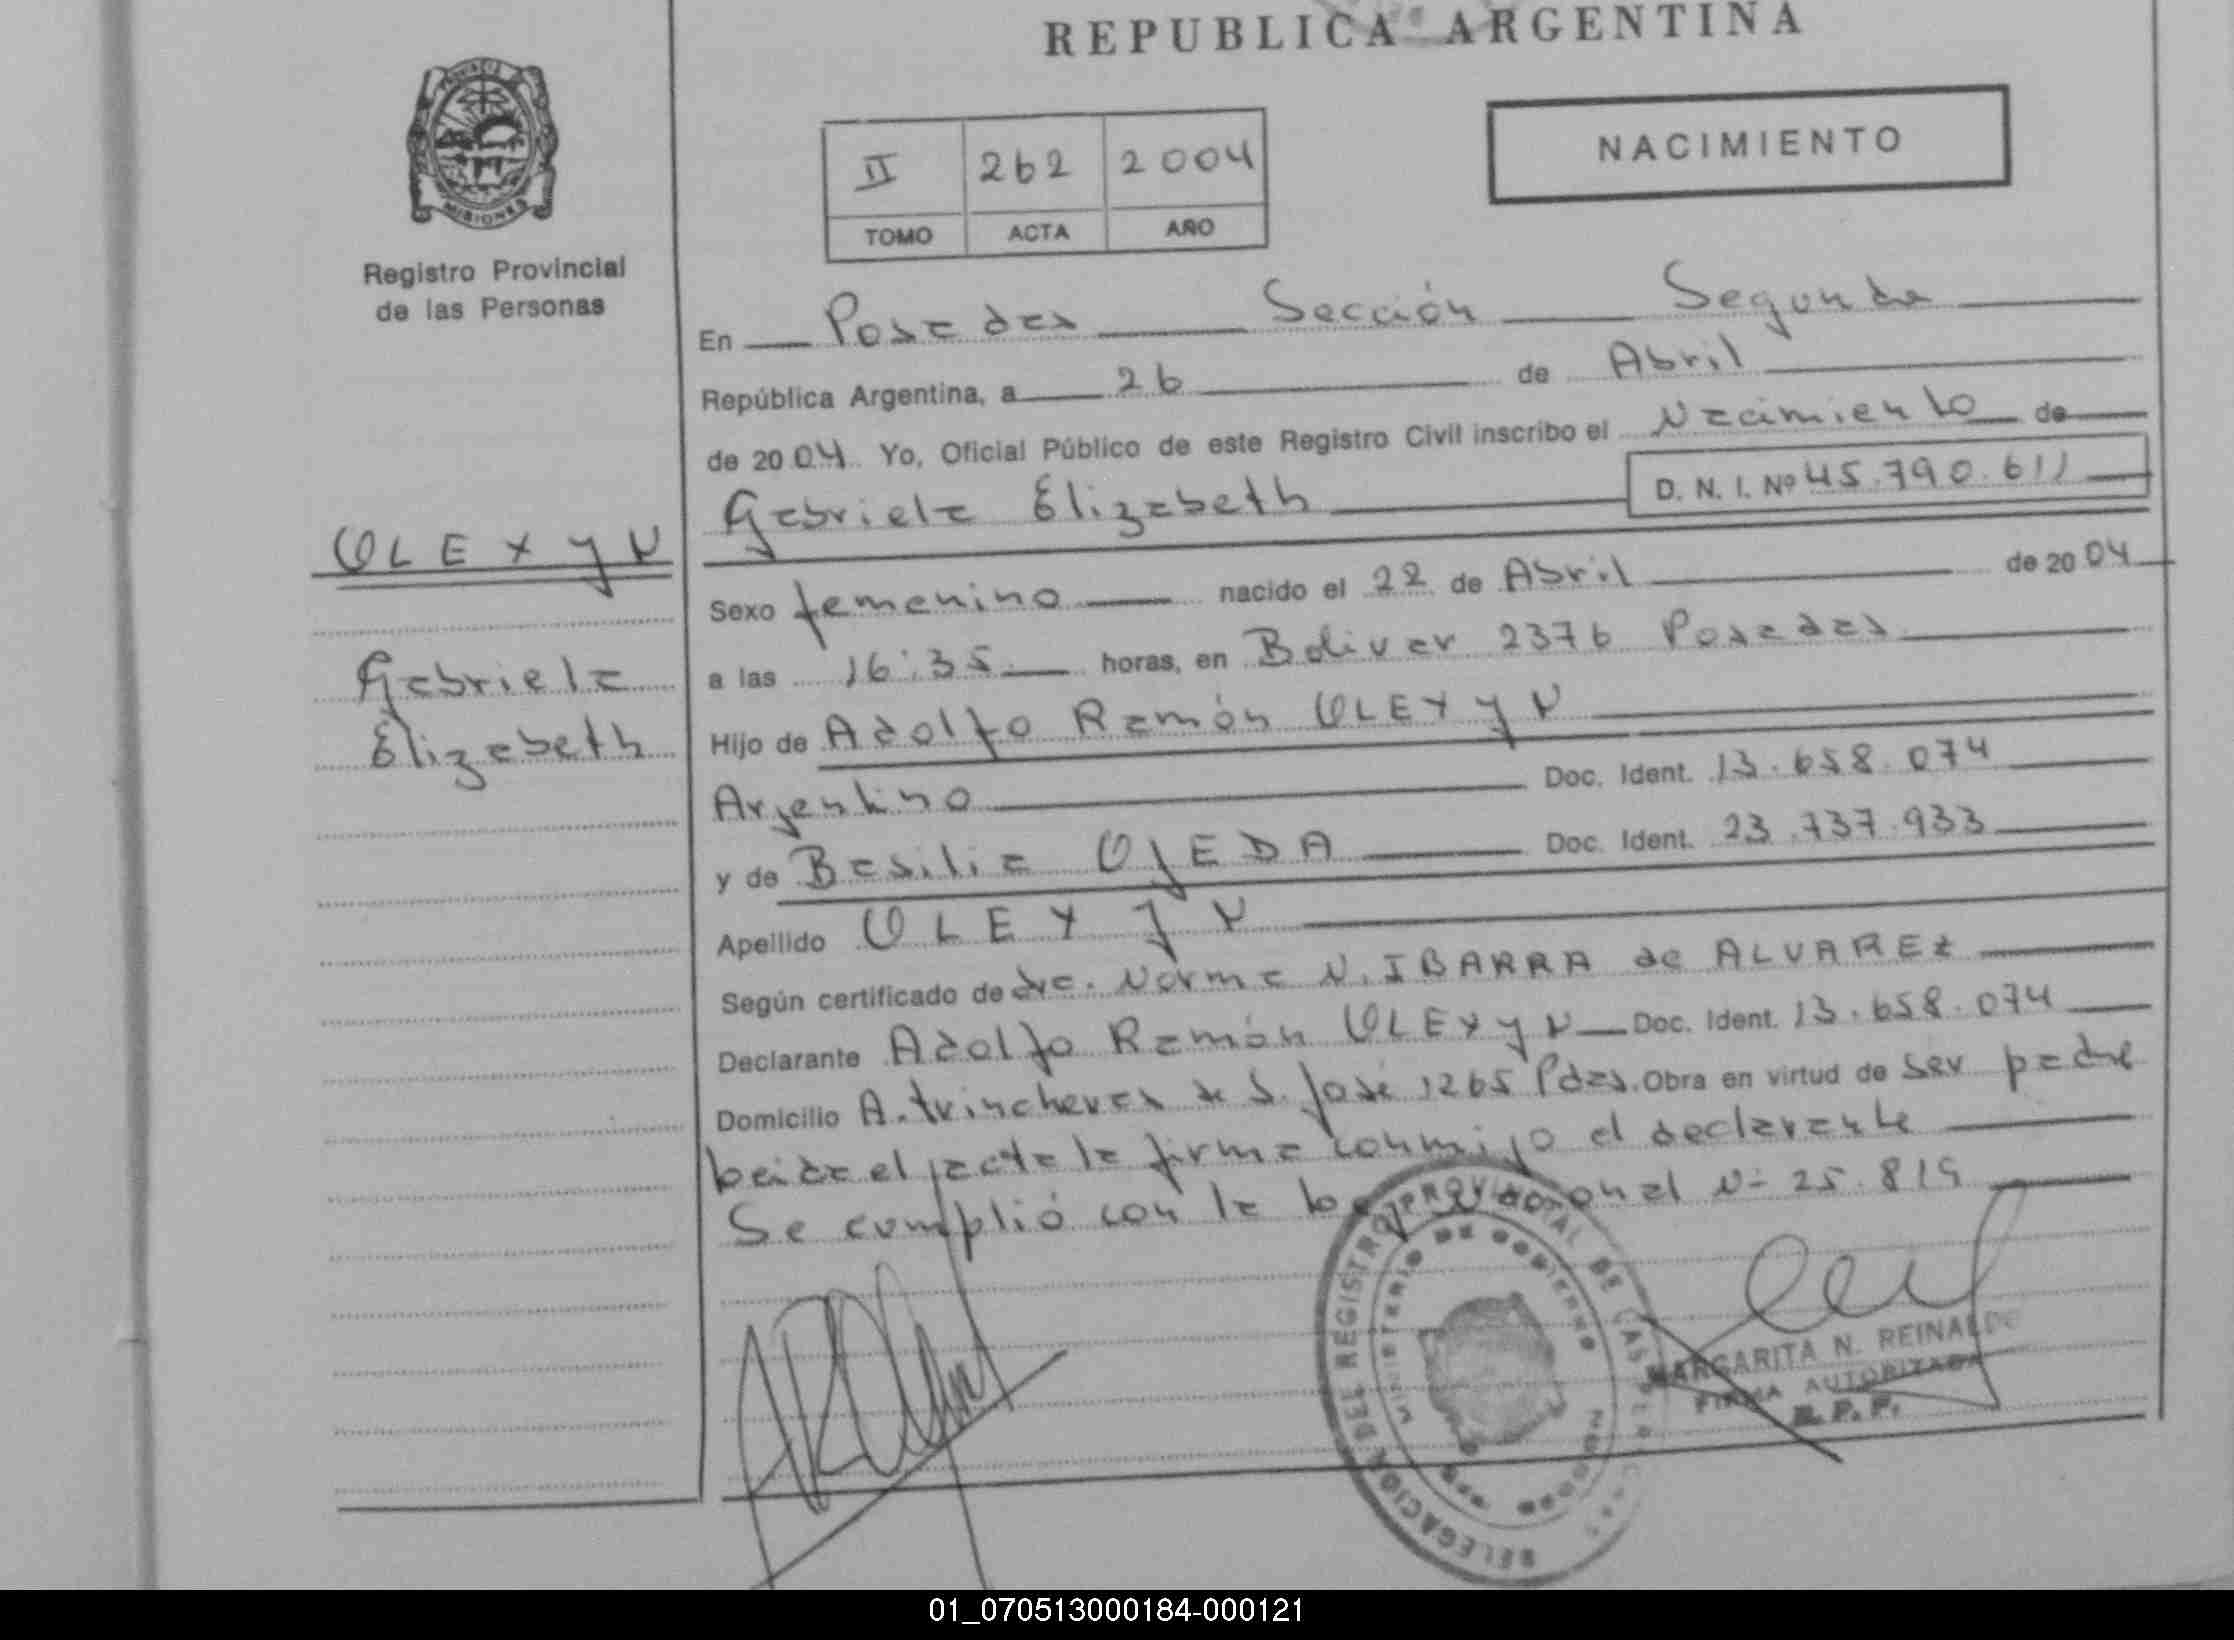 REPUBLICA ARGENTINA
PROVINCIA
MISIONES
Registro Provincial
de las Personas
II 262 2004
TOMO ACTA AÑO
NACIMIENTO
En Posadas Sección Segunda
República Argentina, a 26 de Abril
de 2004 Yo, Oficial Público de este Registro Civil inscribo el Nacimiento de
Gabriela Elizabeth D. N. I. Nº 45.790.611
OLEXYN
Gabriela
Elizabeth
Sexo femenino nacido el 22 de Abril de 2004
a las 16:35 horas, en Bolivar 2376 Posadas
Hijo de Adolfo Ramón OLEXYN
Argentino Doc. Ident. 13.658.074
y de Basilia OJEDA Doc. Ident. 23.737.933
Apellido OLEXYN
Según certificado de dra. Norma N. IBARRA de ALVAREZ
Declarante Adolfo Ramón OLEXYN Doc. Ident. 13.658.074
Domicilio A. trincheras de S. José 1265 Pdas. Obra en virtud de ser padre
Leida el acta la firma conmigo el declarante
Se cumplió con la Ley Nacional Nº 25.819
DELEGACION DEL REGISTRO PROVINCIAL DE LAS
MINISTERIO DE GOBIERNO
MARGARITA N. REINALDO
FIRMA AUTORIZADA
R. P. P.
01_070513000184-000121